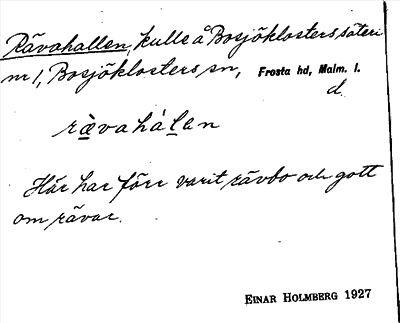 Rävahallen, kulle å Bosjöklosters säteri
nr 1, Bosjöklosters sn, Frosta hd, Malm. l.
d.
rävahálen
Här har förr varit rävbo och gott
om rävar.
EINAR HOLMBERG 1927